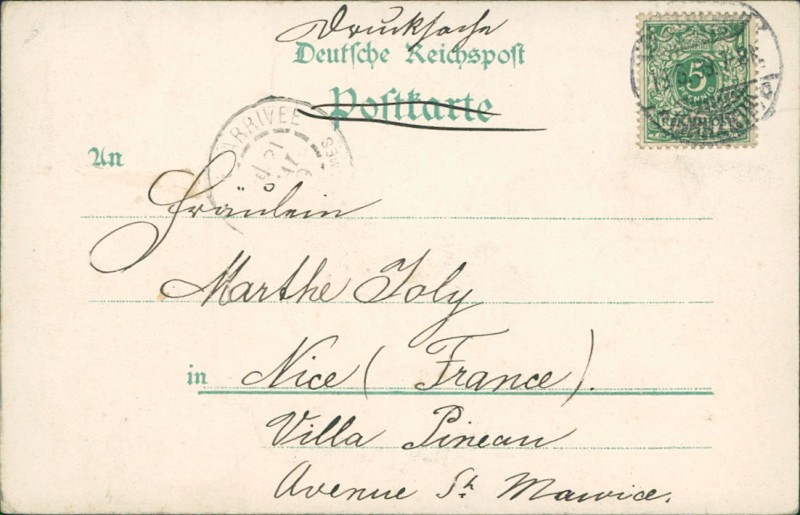 Drucksache
Deutsche Reichspost
Postkarte
ARRIVEE
5
An
Fräulein
Marthe Joly
in Nice (France).
Villa Pineau
Avenue St. Maurice.